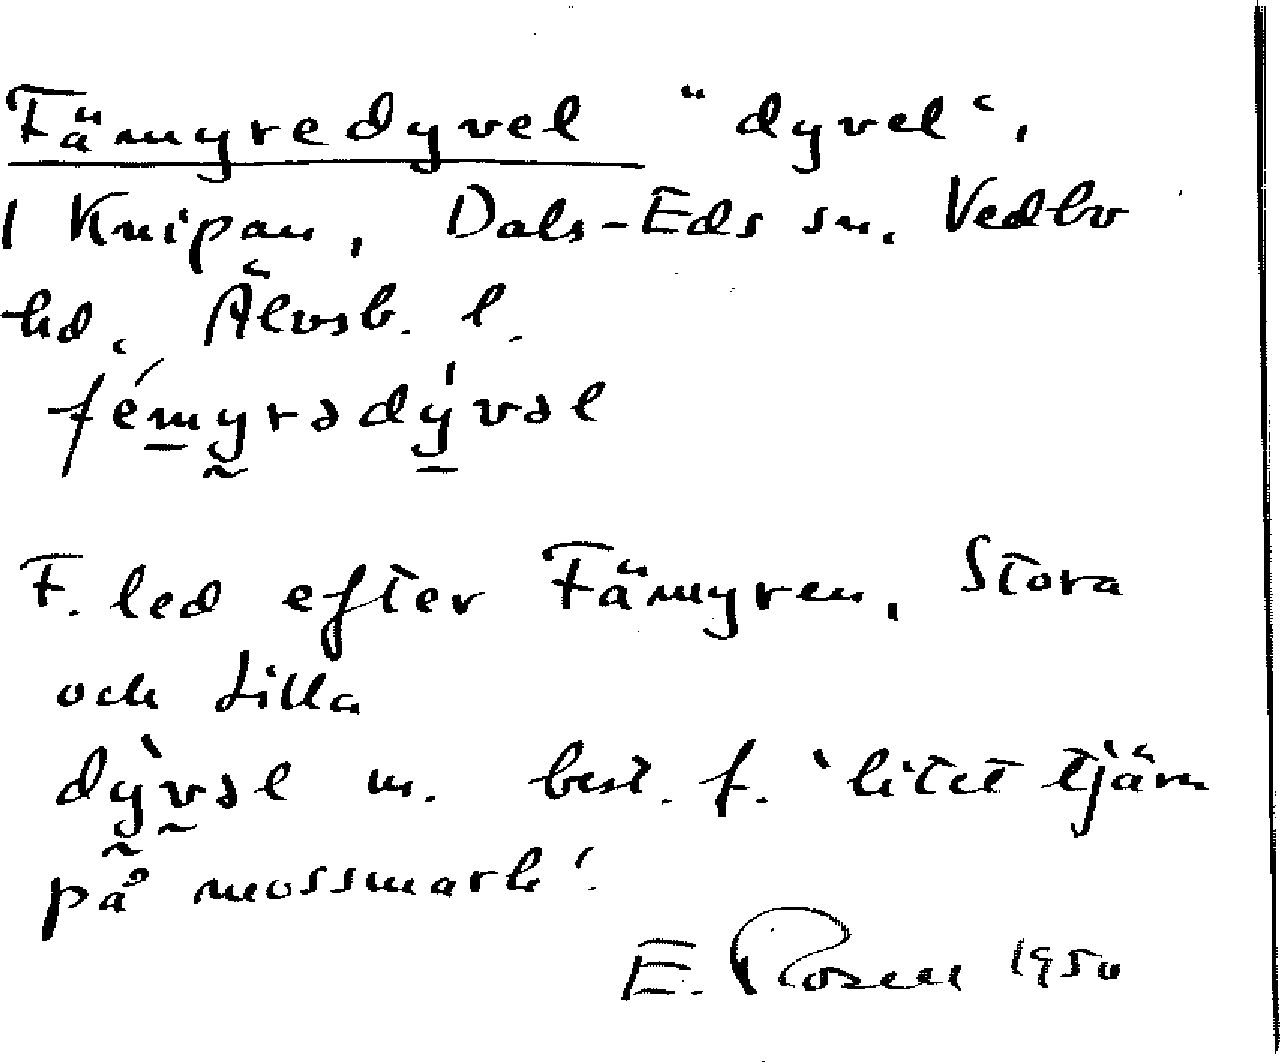 Fämyredyvel "dyvel",
1 Knipan, Dals-Eds sn. Vedbo
hd. Älvsb. l.
fe´m̲y̰rədy̲´vəl
F. led efter Fämyren, Stora
och Lilla
dỳ̰v̰əl m. best. f. 'litet tjärn
på mossmark'.
E. Rosell 1950